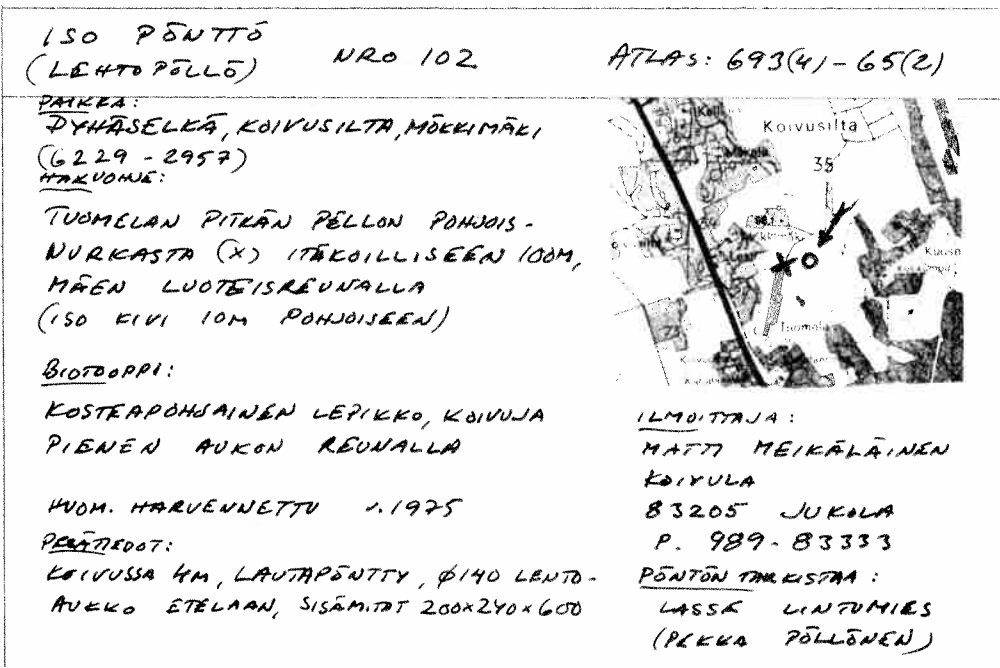 ISO PÖNTTÖ
(LEHTOPÖLLÖ)
NRO 102
ATLAS: 693(4)-65(2)
PAIKKA:
PYHÄSELKÄ, KOIVUSILTA, MÖKKIMÄKI
(6229-2957)
HAKUOHJE:
TUOMELAN PITKÄN PELLON POHJOIS-
NURKASTA (X) ITÄKOILLISEEN 100M,
MÄEN LUOTEISREUNALLA
(ISO KIVI 10M POHJOISEEN)
BIOTOOPPI:
KOSTEAPOHJAINEN LEPIKKO, KOIVUJA
PIENEN AUKON REUNALLA
HUOM. HARVENNETTU v.1975
PESÄTIEDOT:
KOIVUSSA 4M, LAUTAPÖNTTY, Ø140 LENTO-
AUKKO ETELÄÄN, SISÄMITAT 200x240x600
Koivusilta
35
X O
Tuomela
73
ILMOITTAJA:
MATTI MEIKÄLÄINEN
KOIVULA
83205 JUKOLA
P. 989-83333
PÖNTÖN TARKISTAA:
LASSE LINTUMIES
(PEKKA PÖLLÖNEN)